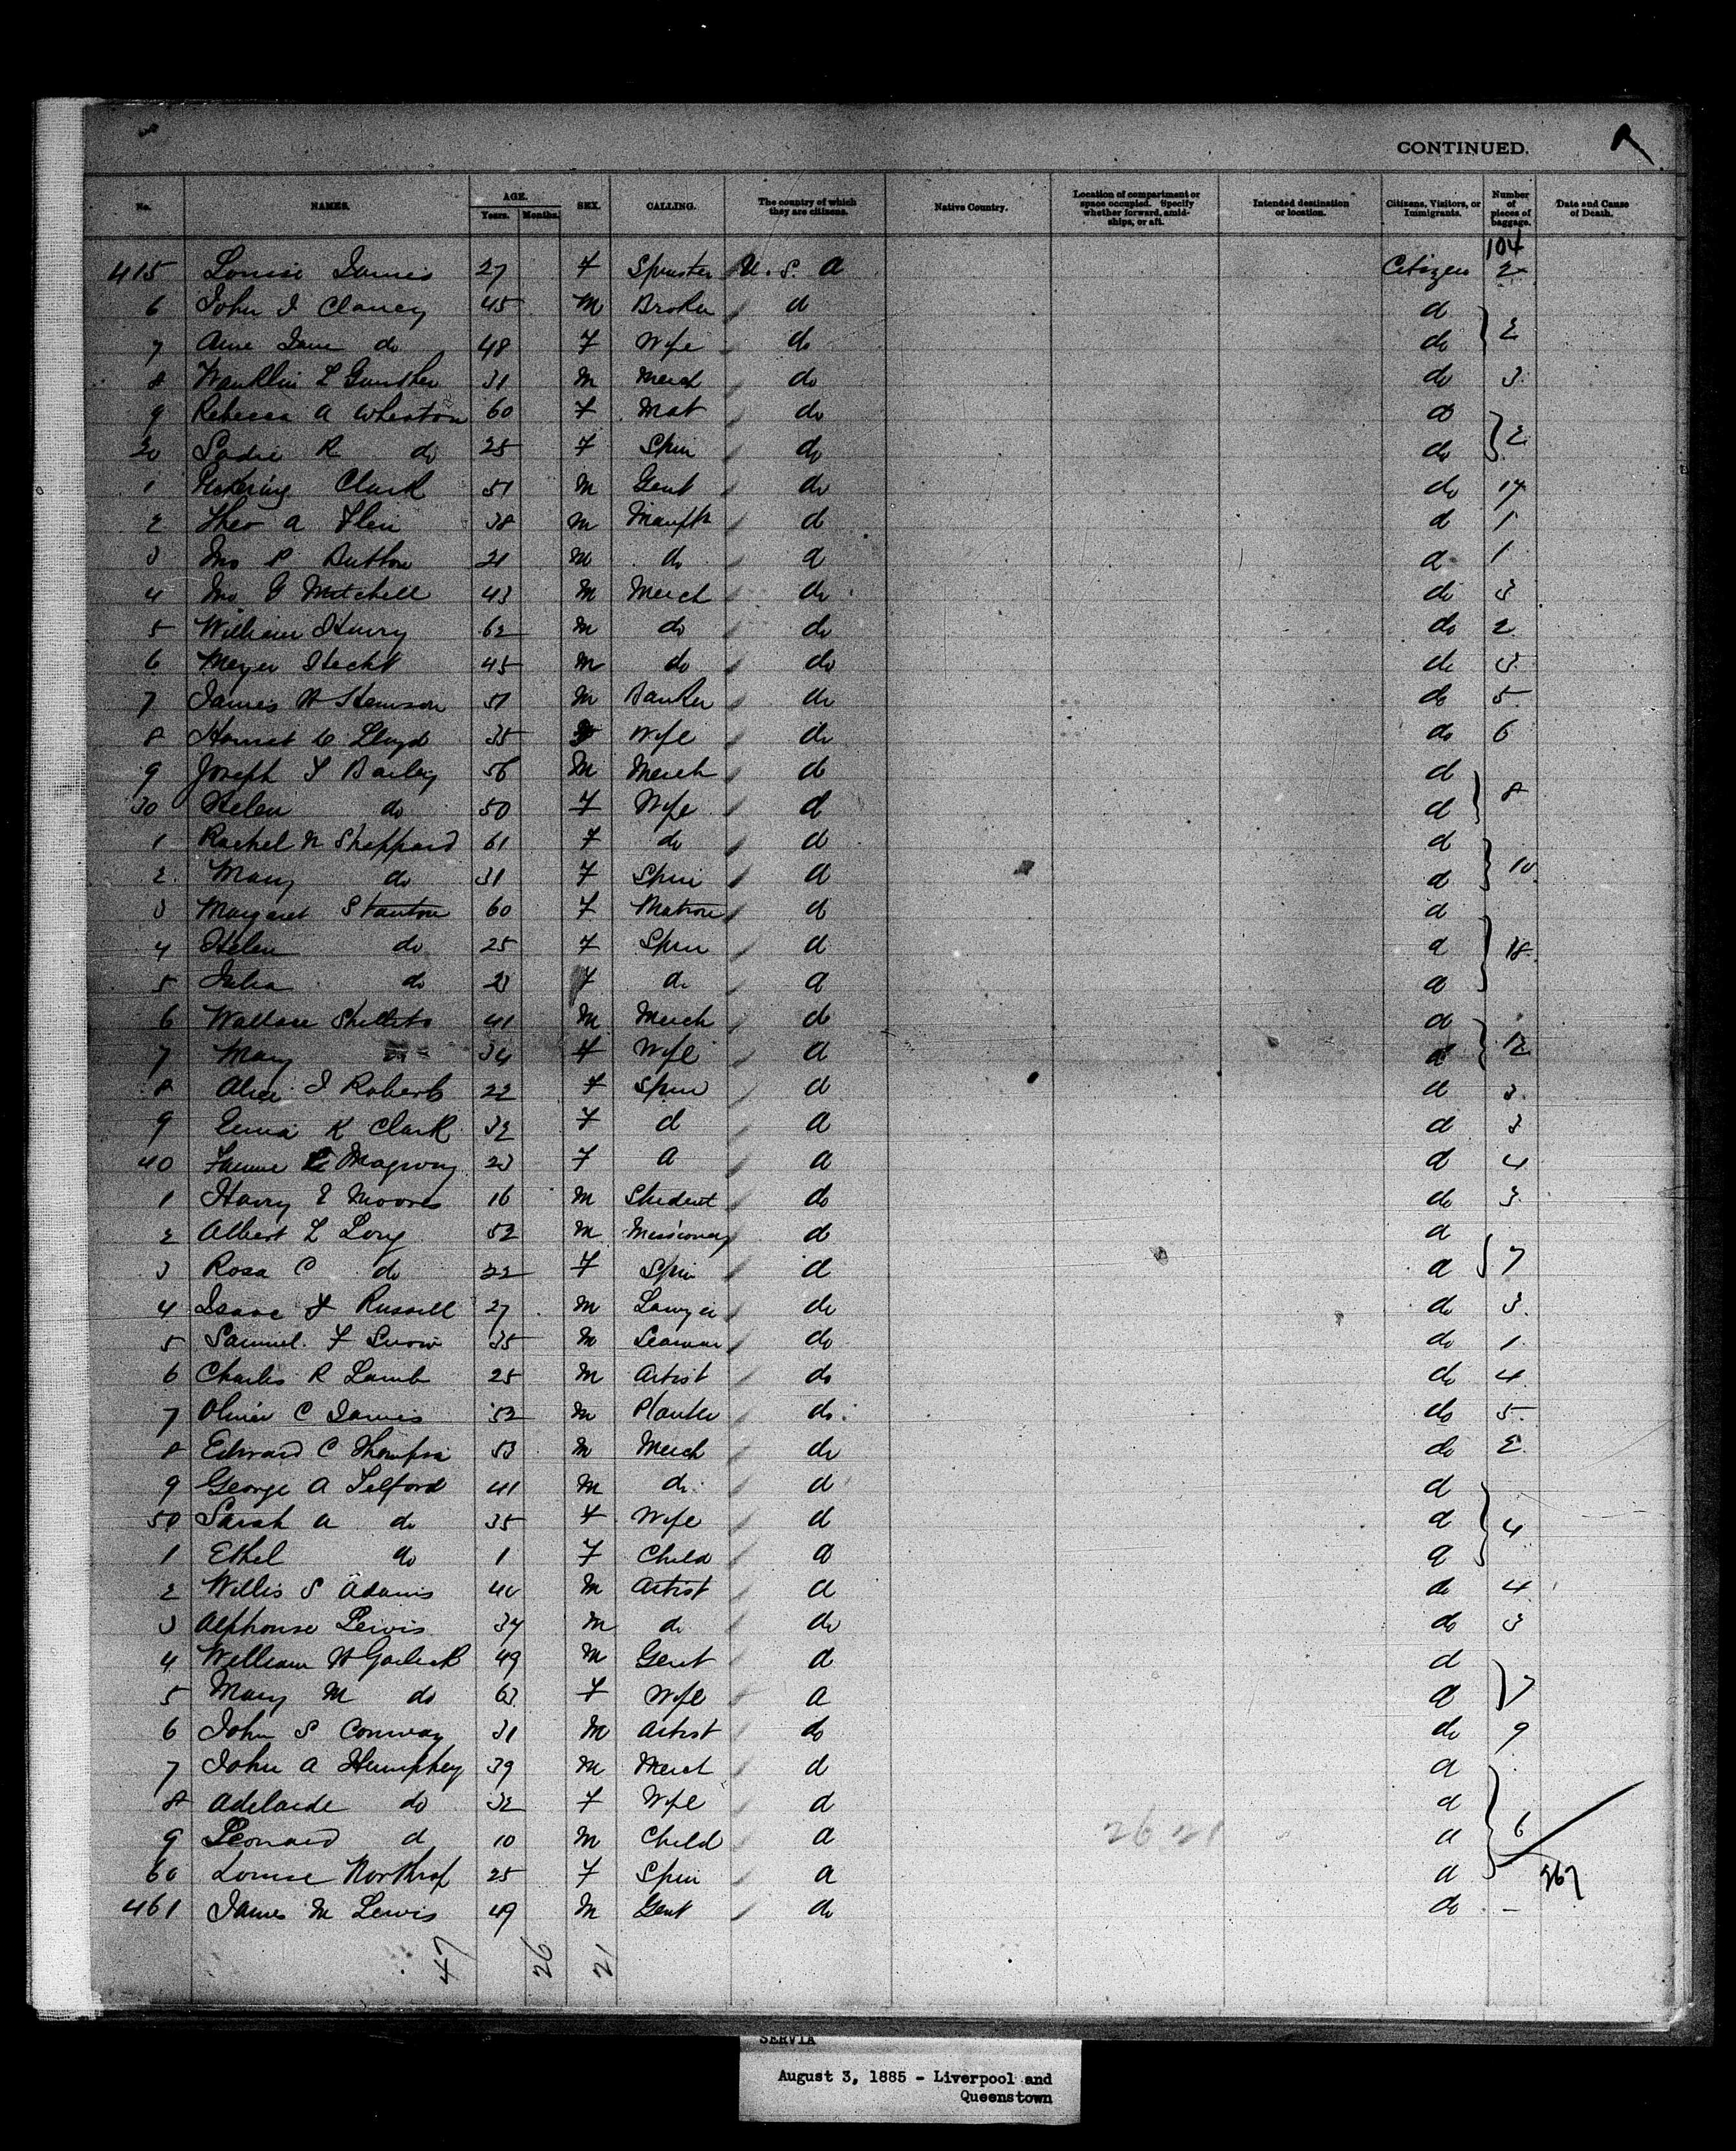 CONTINUED.
No. NAMES. AGE. Years. Months. SEX. CALLING. The country of which they are citizens. Native Country. Location of compartment or space occupied. Specify whether forward, amidships, or aft. Intended destination or location. Citizens, Visitors, or Immigrants. Number of pieces of baggage. Date and Cause of Death.
104
415 Louise James 27 F Spinster U.S.A Citizen 2
6 John J Clancy 45 M Broker do do
7 Anne Jane do 48 F Wife do do 2
8 Franklin L Gunther 31 M Merch do do 3
9 Rebecca A Wheaton 60 F Mat do do
20 Sadie R do 25 F Spin do do 2
1 Pickering Clark 51 M Gent do do 17
2 Theo A 38 M Manftr do d 1
3 Jno P Button 21 M do d d 1
4 Jno G Mitchell 43 M Merch do do 3
5 William Henry 62 M do do do 2
6 Meyer Hecht 45 M do do do 3
7 James H Stimson 51 M Banker do do 5
8 Harriet C Lloyd 35 F Wife do do 6
9 Joseph T Bailey 56 M Merch do d
30 Helen do 50 F Wife d d 8
1 Rachel N Sheppard 61 F do d d
2 Mary do 31 F Spin d d 10
3 Margaret Stanton 60 F Matron d d
4 Helen do 25 F Spin d d 18
5 Julia do 23 F do d d
6 Wallace Shillito 41 M Merch do d
7 Mary 34 F Wife d d 12
8 Alice J Roberts 22 F Spin d d 3
9 K Clark 32 F d d d 3
40 Fannie 23 F d d d 4
1 Harry E Moores 16 M Student do do 3
2 Albert L Long 52 M Missionary d d
3 Rosa C do 22 F Spin d d 7
4 Isaac F Russell 27 M Lawyer do do 3
5 Samuel F Snow 35 M Seaman do do 1
6 Charles R Lamb 25 M Artist do do 4
7 Oliver C James 52 M Planter do do 5
8 Edward C Thompson 53 M Merch do do 2
9 George A Telford 41 M do d d
50 Sarah A do 35 F Wife d d 4
1 Ethel do 1 F Child d d
2 Willis S Adams 40 M Artist d do 4
3 Alphonse Lewis 34 M do do do 3
4 William H Garlick 49 M Gent d d
5 Mary M do 63 F Wife d d 7
6 John S Conway 31 M Artist do do 9
7 John A Humphrey 39 M Merch d d
8 Adelaide do 32 F Wife d d
9 Leonard d 10 M Child d d 6
60 Louise Northrop 25 F Spin d d
461 James M Lewis 49 M Gent do do –
26 21
267
47 26 21
SERVIA
August 3, 1885 - Liverpool and
Queenstown